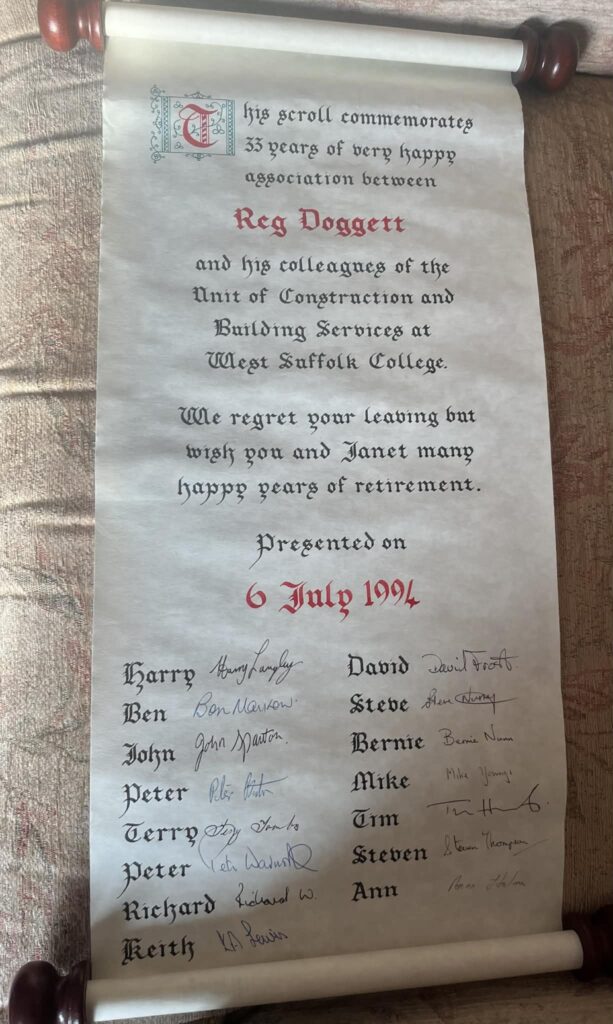 This scroll commemorates
33 years of very happy
association between
Reg Doggett
and his colleagues of the
Unit of Construction and
Building Services at
West Suffolk College.
We regret your leaving but
wish you and Janet many
happy years of retirement.
Presented on
6 July 1994
Harry Harry Langley
Ben Ben
John John
Peter Peter
Terry Terry
Peter Pete
Richard Richard W.
Keith KA Lewis
David David Frost.
Steve Steve
Bernie Bernie Nunn
Mike Mike Young
Tim
Steven Steven Thompson
Ann